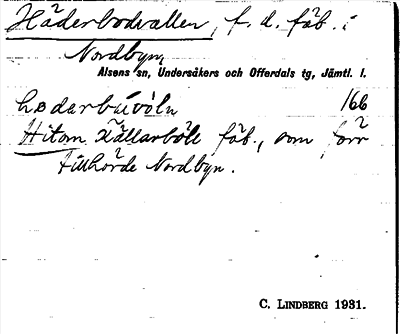 Häderbodvallen, f. d. fäb. i
Nordbyn,
Alsens sn, Undersåkers och Offerdals tg, Jämtl. l.
hødarbúvòln 166
Hitom Källarböle fäb., som förr
tillhörde Nordbyn.
C. LINDBERG 1931.